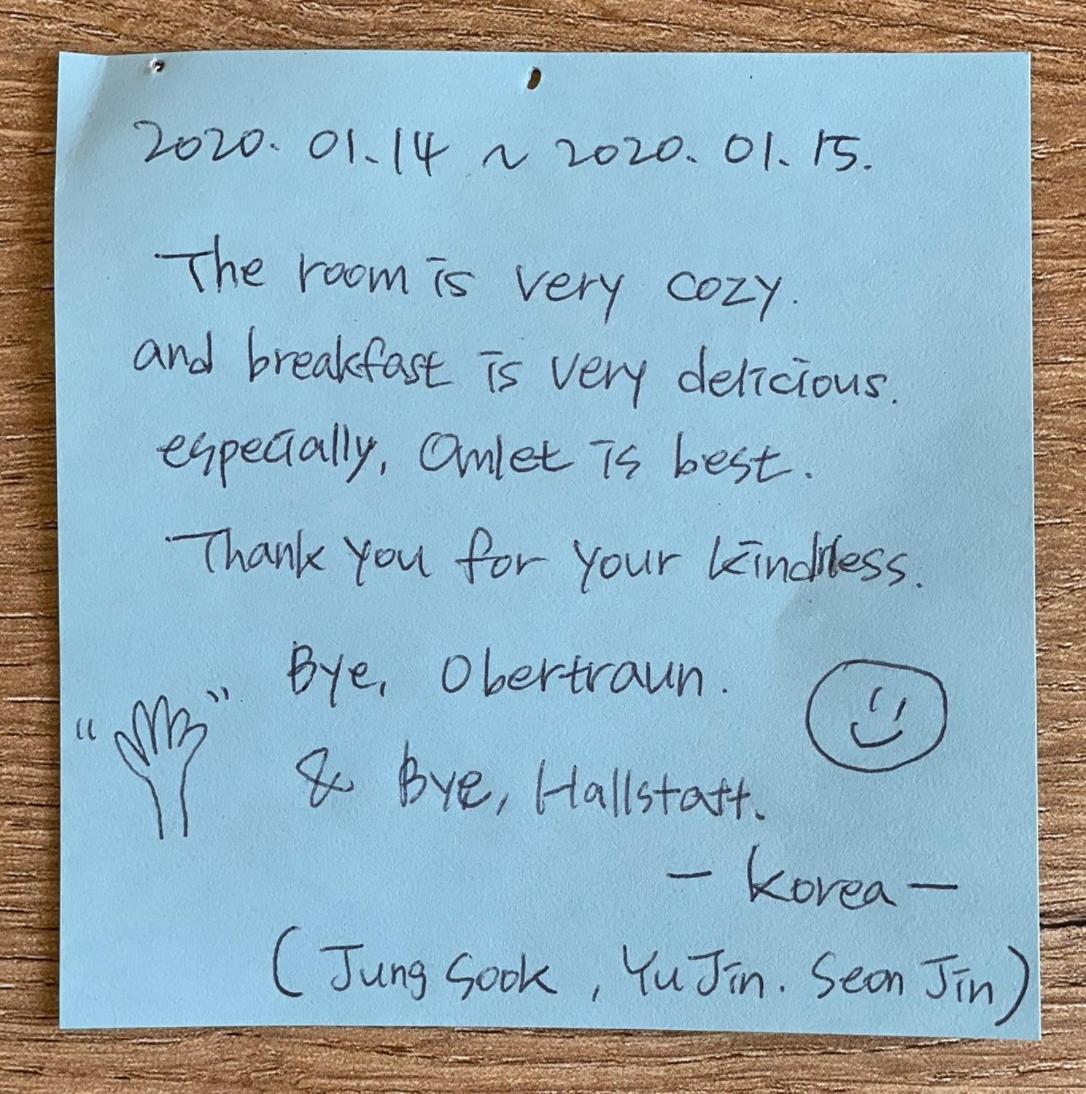 2020. 01. 14 ~ 2020. 01. 15.
The room is very cozy.
and breakfast is very delicious.
especially, Omlet is best.
Thank you for your kindness.
Bye, Obertraun.
" "
& Bye, Hallstatt.
- Korea -
(Jung Sook, Yu Jin. Seon Jin)